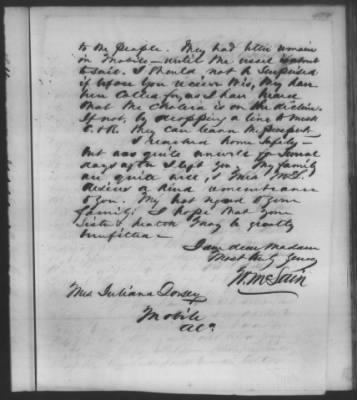 to the people. They had better remain
in Mobile – until the vessel is about
to sail. I should not be surprised
if before you receive this, they have
been called for, as I have heard
that the Cholera is on the decline.
If not, by dropping a line to
they can learn the prospect.
I reached home safely –
but was quite unwell for several
days after I left you. My family
are quite well, & Mrs
desires a kind remembrance
to you. My best regard to your
family: I hope that your
Sister's health may be greatly
benefitted –
I am dear Madam
Most truly yours
W. McLain
Mrs Juliana Dorsey
Mobile
Ala